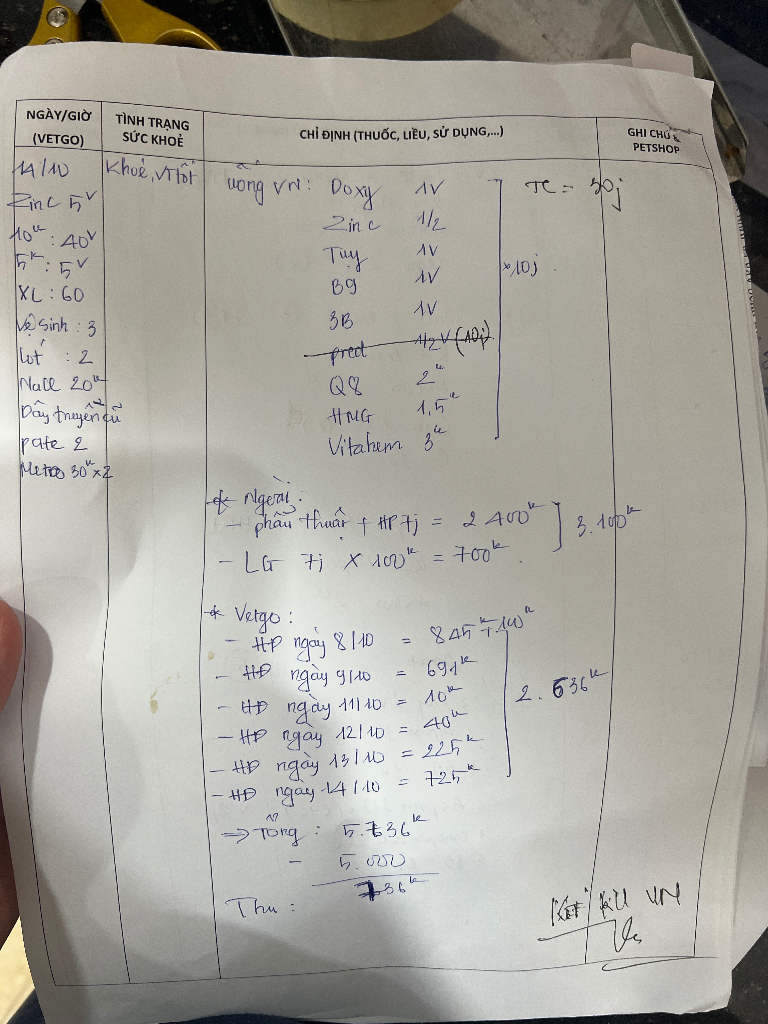 NGÀY/GIỜ (VETGO)
TÌNH TRẠNG SỨC KHOẺ
CHỈ ĐỊNH (THUỐC, LIỀU, SỬ DỤNG,...)
GHI CHÚ & PETSHOP
14/10
Zinc 5v
10k : 40v
5k : 5v
XL : 60
Vệ sinh : 3
lót : 2
Nacl 20k
Dây truyền cũ
pate 2
Metro 30k x 2
Khoẻ, VT tốt
uống VN : Doxy 1V
Zinc 1/2
Tụy 1V
B9 1V
3B 1V
pred 1/2V (10j)
Q8 2k
HMG 1,5k
Vitahem 3k
x10j
TC = 30j
* Ngoài :
- phẫu thuật + HP 7j = 2400k
- LG 7j x 100k = 700k
3.100k
* Vetgo :
- HĐ ngày 8/10 = 845k + 100k
- HĐ ngày 9/10 = 691k
- HĐ ngày 11/10 = 10k
- HĐ ngày 12/10 = 40k
- HĐ ngày 13/10 = 225k
- HĐ ngày 14/10 = 725k
2.636k
=> Tổng : 5.736k
- 5.000
Thu : 736k
VN